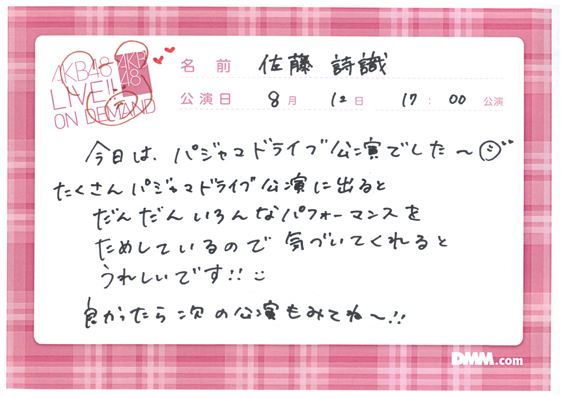 AKB48
LIVE!!
ON DEMAND
AKB
48
名 前 佐藤 詩識
公演日 8月 12日 17:00 公演
今日は、パジャマドライブ公演でした〜
たくさんパジャマドライブ公演に出ると
だんだんいろんなパフォーマンスを
ためしているので気づいてくれると
うれしいです!!
良かったら次の公演もみてね〜!!
DMM.com